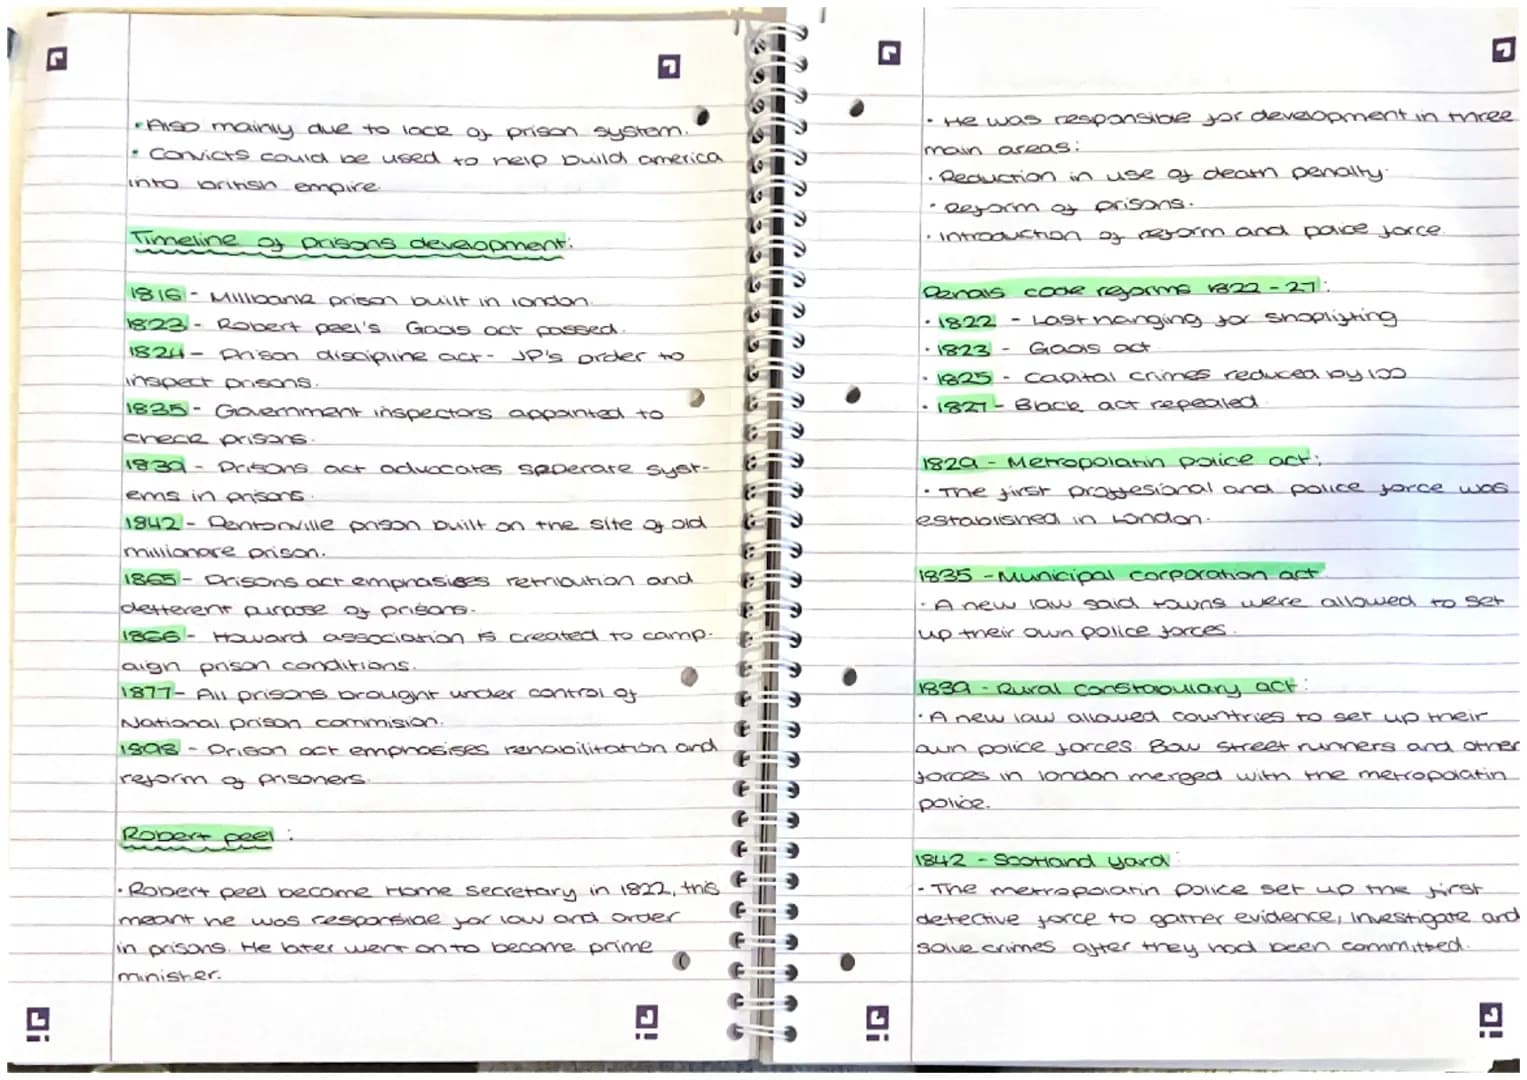 • Also mainly due to lack of prison system.
• Convicts could be used to help build america
into british empire
Timeline of prisons development:
1816 - Millbank prison built in london.
1823 - Robert peel's Gaols act passed.
1824 - Prison discipline act - JP's order to
inspect prisons.
1835 - Government inspectors appointed to
check prisons.
1839 - Prisons act advocates seperate syst-
ems in prisons.
1842 - Pentonville prison built on the site of old
millionare prison.
1865 - Prisons act emphasises retribution and
detterent purpose of prisons.
1866 - Howard association is created to camp-
aign prison conditions.
1877 - All prisons brought under control of
National prison commision.
1898 - Prison act emphasises rehabilitation and
reform of prisoners.
Robert peel:
• Robert peel became Home secretary in 1822, this
meant he was responsible for law and order
in prisons. He later went on to become prime
minister.
• He was responsible for development in three
main areas:
• Reduction in use of death penalty.
• Reform of prisons.
• Introduction of reform and police force.
Penals code reforms 1822 - 27:
• 1822 - Last hanging for shoplifting
• 1823 - Gaols act
• 1825 - Capital crimes reduced by 100
• 1827 - Black act repealed
1829 - Metropolatin police act:
• The first proffesional and police force was
established in London.
1835 - Municipal corporation act
• A new law said towns were allowed to set
up their own police forces.
1839 - Rural constabulary act:
• A new law allowed countries to set up their
own police forces. Bow street runners and other
forces in london merged with the metropolatin
police.
1842 - Scotland yard:
• The metropolatin police set up the first
detective force to gather evidence, investigate and
solve crimes after they had been committed.